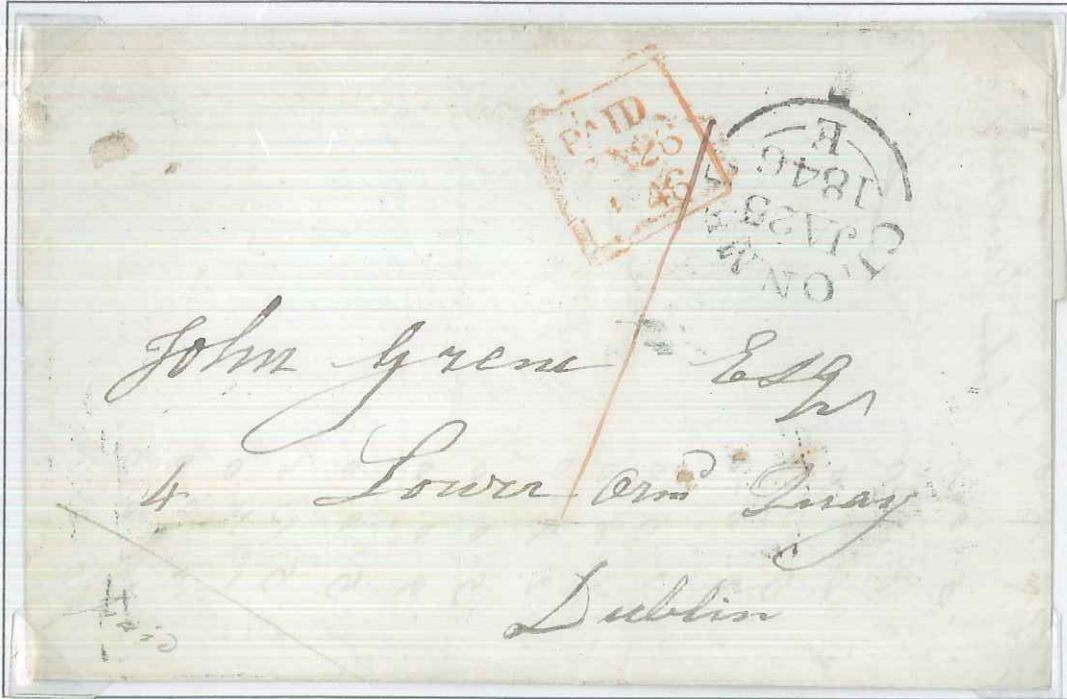 PAID
JA 26
1846
CLONMEL
JA 23
1846
E
John Grene Esqr
4 Lower Ormd Quay
Dublin